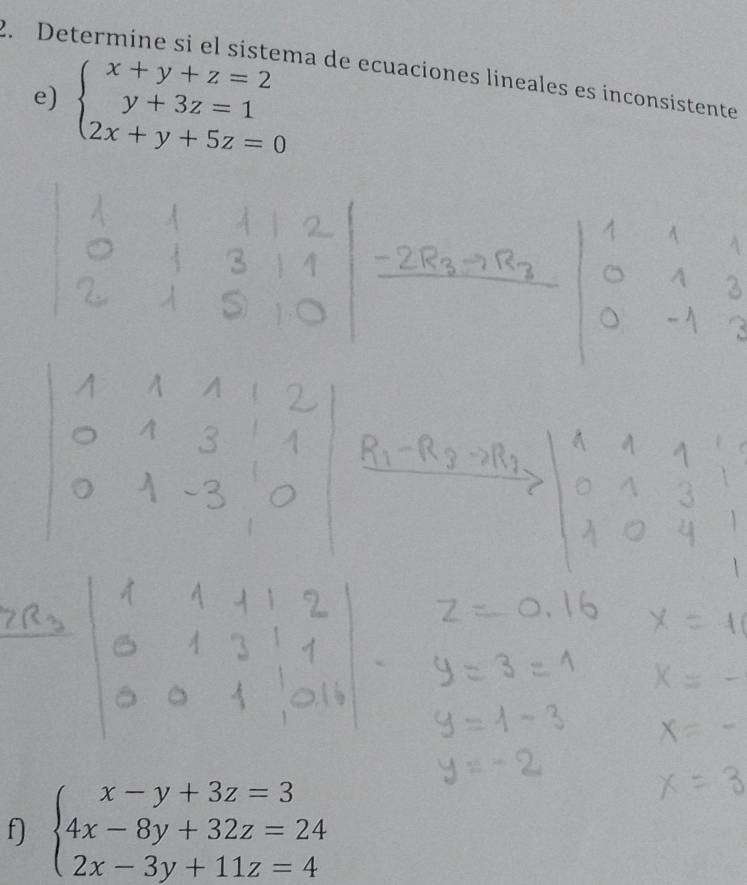 2. Determine si el sistema de ecuaciones lineales es inconsistente
e) { x + y + z = 2
y + 3z = 1
2x + y + 5z = 0
| 1 1 1 | 2 |
| 0 1 3 | 1 | -2R3→R3
| 2 1 5 | 0 |
| 1 1 1
| 0 1 3
| 0 -1 3
| 1 1 1 | 2 |
| 0 1 3 | 1 |
| 0 1 -3 | 0 |
| 1 1 1
| 0 1 3
| 1 0 4
| 1 1 1 | 2 |
| 0 1 3 | 1 |
| 0 0 1 | 0.16 |
z = 0.16
y = 3 = 1
y = 1 - 3
y = -2
x = -
x = -
x = 3
f) { x - y + 3z = 3
4x - 8y + 32z = 24
2x - 3y + 11z = 4